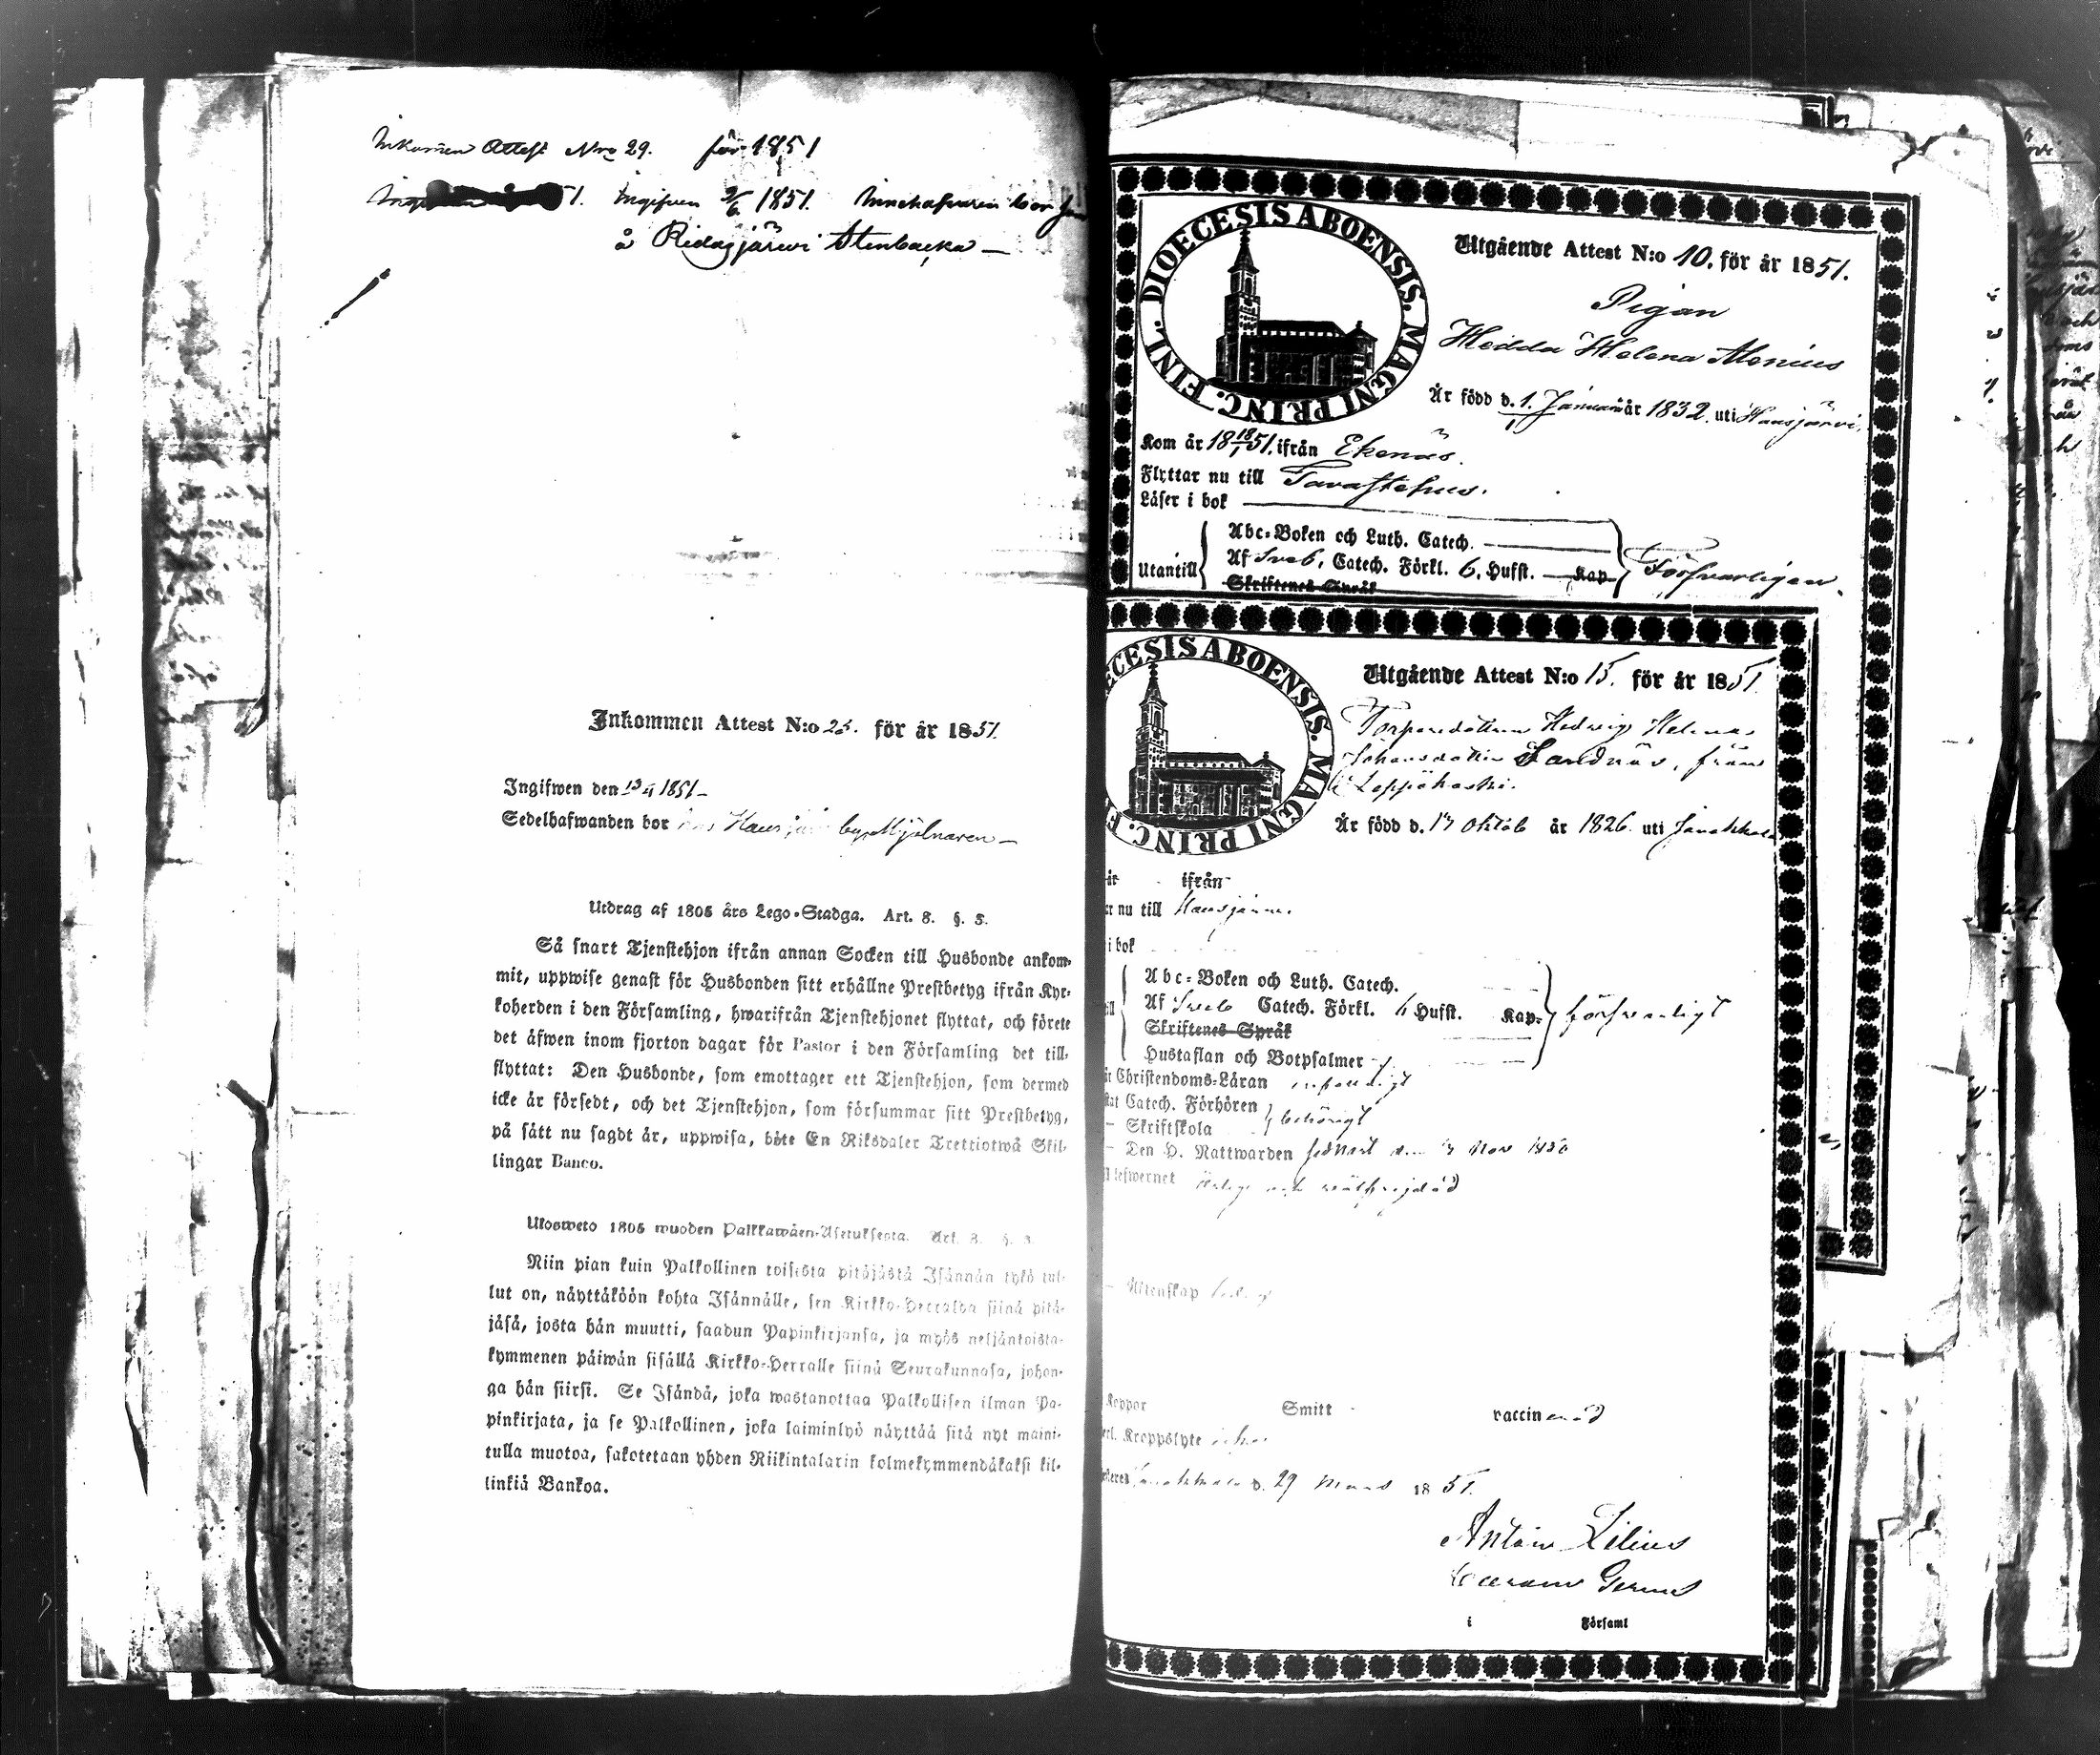 Inkommen Attest Nro 29. för 1851
1. Ingifven 2/6 1851. Innehafvaren bor
å Ridasjärvi Stenbacka —
Inkommen Attest N:o 25. för år 1851.
Ingifwen den 13/4 1851 —
Sedelhafwanden bor Hausjärvi by, Mjölnaren —
Utdrag af 1805 års Lego-Stadga. Art. 8. §. 3.
Så snart Tjenstehjon ifrån annan Socken till Husbonde ankom-
mit, uppwise genast för Husbonden sitt erhållne Prestbetyg ifrån Kyr-
koherden i den Församling, hwarifrån Tjenstehjonet flyttat, och förete
det åfwen inom fjorton dagar för Pastor i den Församling det till-
flyttat: Den Husbonde, som emottager ett Tjenstehjon, som dermed
icke är försedt, och det Tjenstehjon, som försummar sitt Prestbetyg,
på sätt nu sagdt är, uppwisa, böte En Riksdaler Trettiotwå Skil-
lingar Banco.
Ulosweto 1805 wuoden Palkkawäen-Asetuksesta. Art. 8. §. 3.
Niin pian kuin Palkollinen toisesta pitäjästä Isännän tykö tul-
lut on, näyttäköön kohta Isännälle, sen Kirkko-Herralda siinä pitä-
jäsä, josta hän muutti, saadun Papinkirjansa, ja myös neljäntoista-
kymmenen päiwän sisällä Kirkko-Herralle siinä Seurakunnasa, johon-
ga hän siirsi. Se Isändä, joka wastanottaa Palkollisen ilman Pa-
pinkirjata, ja se Palkollinen, joka laiminlyö näyttää sitä nyt maini-
tulla muotoa, sakotetaan yhden Riikintalarin kolmekymmendäkaksi kil-
linkiä Bankoa.
DIOECESIS ABOENSIS. MAGNI PRINC. FINL.
Utgående Attest N:o 10. för år 1851.
Pigan
Hedda Helena Alenius
Är född d. 1. Januari år 1832. uti Hausjärvi.
Kom år 18 18/1 51. ifrån Ekenäs.
Flyttar nu till Tavastehus.
Läser i bok
Abc-Boken och Luth. Catech.
Utantill Af Sveb. Catech. Förkl. 6, Hufst. Kap Försvarligen
Skriftenes Språk
ECESIS ABOENSIS. MAGNI PRINC. F
Utgående Attest N:o 15. för år 1851
Torparedottren Hedvig Helena
Johansdotter Sandnäs, från
Leppäkoski.
Är född d. 17 Oktob år 1826. uti Janakkala
år ifrån
r nu till Hausjärvi.
i bok
Abc-Boken och Luth. Catech.
Af Sveb Catech. Förkl. 6 Hufst. Kap. försvarligt
Skriftenes Språk
Hustaflan och Botpsalmer 7.
Christendoms-Läran
Catech. Förhören
behörigt
– Skriftskola
– Den H. Nattwarden sednast d. 3 Nov 1850
lefwernet
– Äktenskap ledig
Koppor Smitt vaccinerad
Kroppslyte
Janakkala d. 29 Mars 1851.
Anton Lilius
i Församl